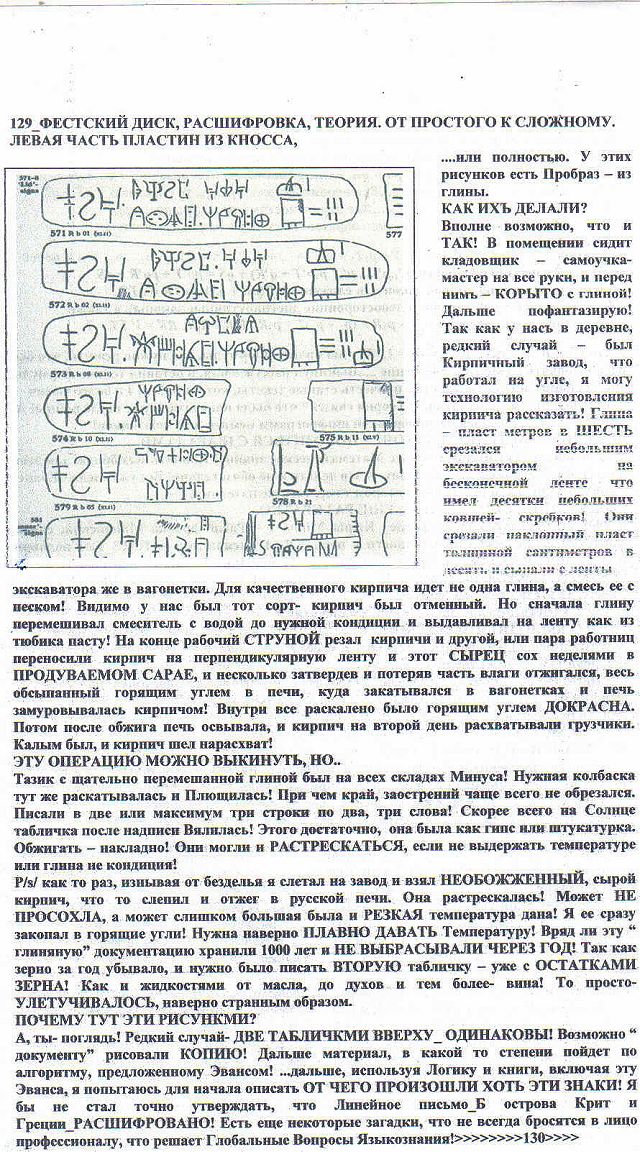 129_ФЕСТСКИЙ ДИСК, РАСШИФРОВКА, ТЕОРИЯ. ОТ ПРОСТОГО К СЛОЖНОМУ.
ЛЕВАЯ ЧАСТЬ ПЛАСТИН ИЗ КНОССА,
571 R b 01
577
572 R b 02
573 R b 08
574 R b 10
575 R b 11
579 R b 05
578 R b 21
....или полностью. У этих
рисунков есть Пробраз – из
глины.
КАК ИХЪ ДЕЛАЛИ?
Вполне возможно, что и
ТАК! В помещении сидит
кладовщик – самоучка-
мастер на все руки, и перед
нимъ – КОРЫТО с глиной!
Дальше пофантазирую!
Так как у насъ в деревне,
редкий случай – был
Кирпичный завод, что
работал на угле, я могу
технологию изготовления
кирпича рассказать! Глина
– пласт метров в ШЕСТЬ
срезался небольшим
экскаватором на
бесконечной ленте что
имел десятки небольших
ковшей- скребков! Они
срезали наклонный пласт
толщиной сантиметров в
десять и сыпали с ленты
экскаватора же в вагонетки. Для качественного кирпича идет не одна глина, а смесь ее с
песком! Видимо у нас был тот сорт- кирпич был отменный. Но сначала глину
перемешивал смеситель с водой до нужной кондиции и выдавливал на ленту как из
тюбика пасту! На конце рабочий СТРУНОЙ резал кирпичи и другой, или пара работниц
переносили кирпич на перпендикулярную ленту и этот СЫРЕЦ сох неделями в
ПРОДУВАЕМОМ САРАЕ, и несколько затвердев и потеряв часть влаги отжигался, весь
обсыпанный горящим углем в печи, куда закатывался в вагонетках и печь
замуровывалась кирпичом! Внутри все раскалено было горящим углем ДОКРАСНА.
Потом после обжига печь освывала, и кирпич на второй день расхватывали грузчики.
Калым был, и кирпич шел нарасхват!
ЭТУ ОПЕРАЦИЮ МОЖНО ВЫКИНУТЬ, НО..
Тазик с щательно перемешанной глиной был на всех складах Минуса! Нужная колбаска
тут же раскатывалась и Плющилась! При чем край, заострений чаще всего не обрезался.
Писали в две или максимум три строки по два, три слова! Скорее всего на Солнце
табличка после надписи Вялилась! Этого достаточно, она была как гипс или штукатурка.
Обжигать – накладно! Они могли и РАСТРЕСКАТЬСЯ, если не выдержать температуре
или глина не кондиция!
P/s/ как то раз, изнывая от безделья я слетал на завод и взял НЕОБОЖЖЕННЫЙ, сырой
кирпич, что то слепил и отжег в русской печи. Она растрескалась! Может НЕ
ПРОСОХЛА, а может слишком большая была и РЕЗКАЯ температура дана! Я ее сразу
закопал в горящие угли! Нужна наверно ПЛАВНО ДАВАТЬ Температуру! Вряд ли эту “
глиняную” документацию хранили 1000 лет и НЕ ВЫБРАСЫВАЛИ ЧЕРЕЗ ГОД! Так как
зерно за год убывало, и нужно было писать ВТОРУЮ табличку – уже с ОСТАТКАМИ
ЗЕРНА! Как и жидкостями от масла, до духов и тем более- вина! То просто-
УЛЕТУЧИВАЛОСЬ, наверно странным образом.
ПОЧЕМУ ТУТ ЭТИ РИСУНКМИ?
А, ты- поглядь! Редкий случай- ДВЕ ТАБЛИЧКМИ ВВЕРХУ_ ОДИНАКОВЫ! Возможно “
документу” рисовали КОПИЮ! Дальше материал, в какой то степени пойдет по
алгоритму, предложенному Эвансом! ...дальше, используя Логику и книги, включая эту
Эванса, я попытаюсь для начала описать ОТ ЧЕГО ПРОИЗОШЛИ ХОТЬ ЭТИ ЗНАКИ! Я
бы не стал точно утверждать, что Линейное письмо_Б острова Крит и
Греции_РАСШИФРОВАНО! Есть еще некоторые загадки, что не всегда бросятся в лицо
профессионалу, что решает Глобальные Вопросы Языкознания!>>>>>>>>130>>>>